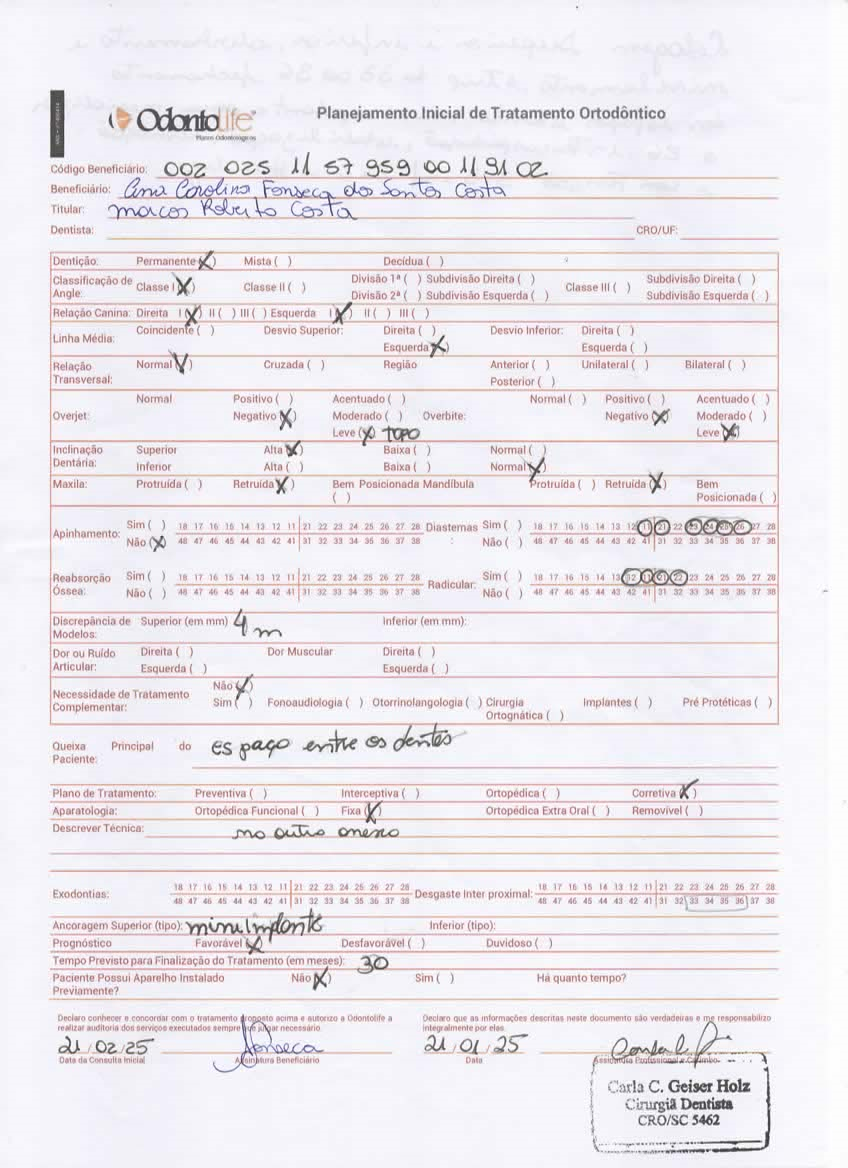 OdontoLife
Planos Odontológicos
Planejamento Inicial de Tratamento Ortodôntico
Código Beneficiário: 002 025 11 57 959 00 11 91 02
Beneficiário: Ana Carolina Fonseca dos Santos Costa
Titular: marcos Roberto Costa
Dentista: CRO/UF:
Dentição: Permanente (X) Mista ( ) Decídua ( )
Classificação de Angle: Classe I (X) Classe II ( ) Divisão 1ª ( ) Subdivisão Direita ( ) Classe III ( ) Subdivisão Direita ( )
Divisão 2ª ( ) Subdivisão Esquerda ( ) Subdivisão Esquerda ( )
Relação Canina: Direita I (X) II ( ) III ( ) Esquerda I (X) II ( ) III ( )
Linha Média: Coincidente ( ) Desvio Superior: Direita ( ) Desvio Inferior: Direita ( )
Esquerda (X) Esquerda ( )
Relação Transversal: Normal (X) Cruzada ( ) Região Anterior ( ) Unilateral ( ) Bilateral ( )
Posterior ( )
Normal Positivo ( ) Acentuado ( ) Normal ( ) Positivo ( ) Acentuado ( )
Overjet: Negativo (X) Moderado ( ) Overbite: Negativo (X) Moderado ( )
Leve (X) TOPO Leve (X)
Inclinação Dentária: Superior Alta (X) Baixa ( ) Normal ( )
Inferior Alta ( ) Baixa ( ) Normal (X)
Maxila: Protruída ( ) Retruída (X) Bem Posicionada ( ) Mandíbula Protruída ( ) Retruída (X) Bem Posicionada ( )
Apinhamento: Sim ( ) 18 17 16 15 14 13 12 11 21 22 23 24 25 26 27 28 Diastemas: Sim ( ) 18 17 16 15 14 13 12 11 21 22 23 24 25 26 27 28
Não (X) 48 47 46 45 44 43 42 41 31 32 33 34 35 36 37 38 Não ( ) 48 47 46 45 44 43 42 41 31 32 33 34 35 36 37 38
Reabsorção Óssea: Sim ( ) 18 17 16 15 14 13 12 11 21 22 23 24 25 26 27 28 Radicular: Sim ( ) 18 17 16 15 14 13 12 11 21 22 23 24 25 26 27 28
Não ( ) 48 47 46 45 44 43 42 41 31 32 33 34 35 36 37 38 Não ( ) 48 47 46 45 44 43 42 41 31 32 33 34 35 36 37 38
Discrepância de Modelos: Superior (em mm) 4 m Inferior (em mm):
Dor ou Ruído Articular: Direita ( ) Dor Muscular Direita ( )
Esquerda ( ) Esquerda ( )
Necessidade de Tratamento Complementar: Não (X)
Sim ( ) Fonoaudiologia ( ) Otorrinolangologia ( ) Cirurgia Ortognática ( ) Implantes ( ) Pré Protéticas ( )
Queixa Principal do Paciente: espaço entre os dentes
Plano de Tratamento: Preventiva ( ) Interceptiva ( ) Ortopédica ( ) Corretiva (X)
Aparatologia: Ortopédica Funcional ( ) Fixa (X) Ortopédica Extra Oral ( ) Removível ( )
Descrever Técnica: no outro anexo
Exodontias: 18 17 16 15 14 13 12 11 21 22 23 24 25 26 27 28 Desgaste Inter proximal: 18 17 16 15 14 13 12 11 21 22 23 24 25 26 27 28
48 47 46 45 44 43 42 41 31 32 33 34 35 36 37 38 48 47 46 45 44 43 42 41 31 32 33 34 35 36 37 38
Ancoragem Superior (tipo): miniimplante Inferior (tipo):
Prognóstico Favorável (X) Desfavorável ( ) Duvidoso ( )
Tempo Previsto para Finalização do Tratamento (em meses): 30
Paciente Possui Aparelho Instalado Previamente? Não (X) Sim ( ) Há quanto tempo?
Declaro conhecer e concordar com o tratamento proposto acima e autorizo a Odontolife a Declaro que as informações descritas neste documento são verdadeiras e me responsabilizo
realizar auditoria dos serviços executados sempre que julgar necessário. integralmente por elas.
21/02/25 Fonseca 21/01/25
Data da Consulta Inicial Assinatura Beneficiário Data Assinatura Profissional e Carimbo
Carla C. Geiser Holz
Cirurgiã Dentista
CRO/SC 5462